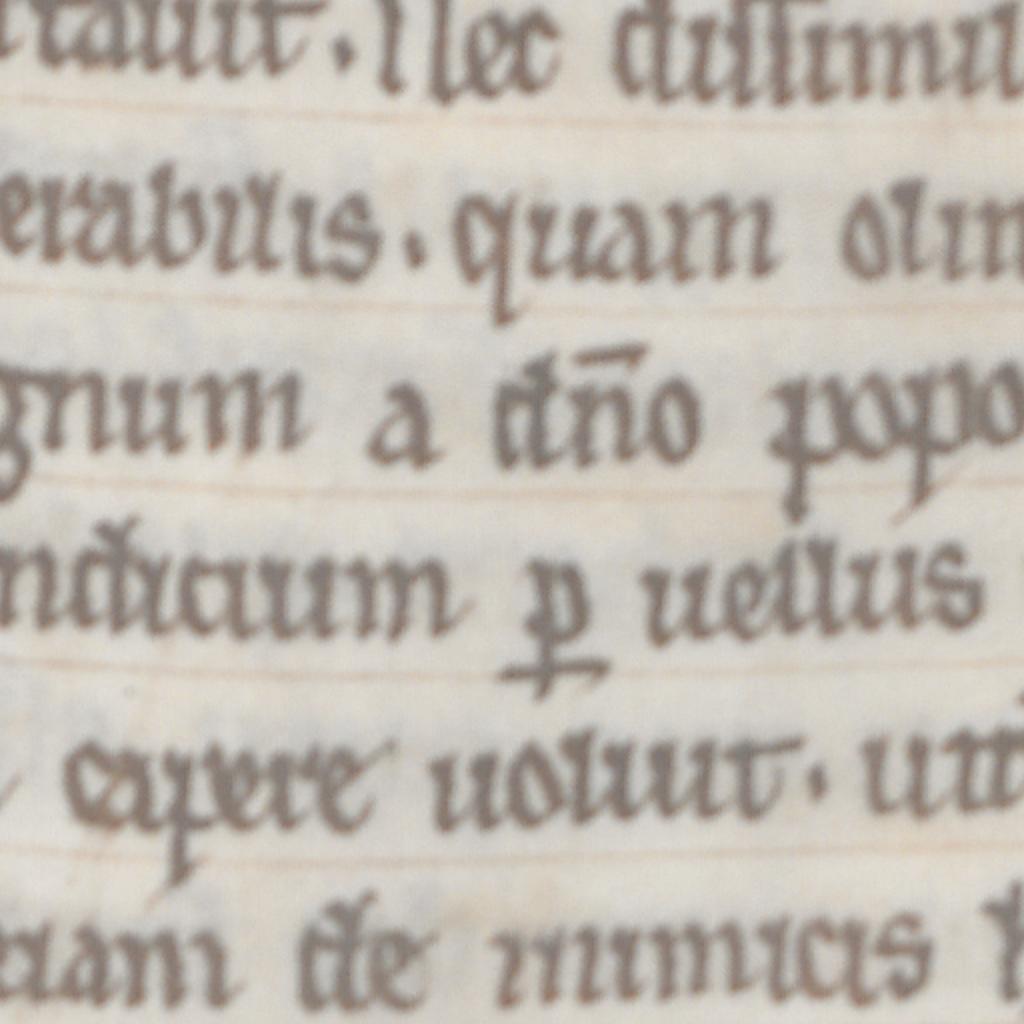 rtauit. Nec dissimil
erabilis. quam olim
gnum a dn̄o popo
ndicium ꝑ uellus
capere uoluit. utı
ciam de inimicis h